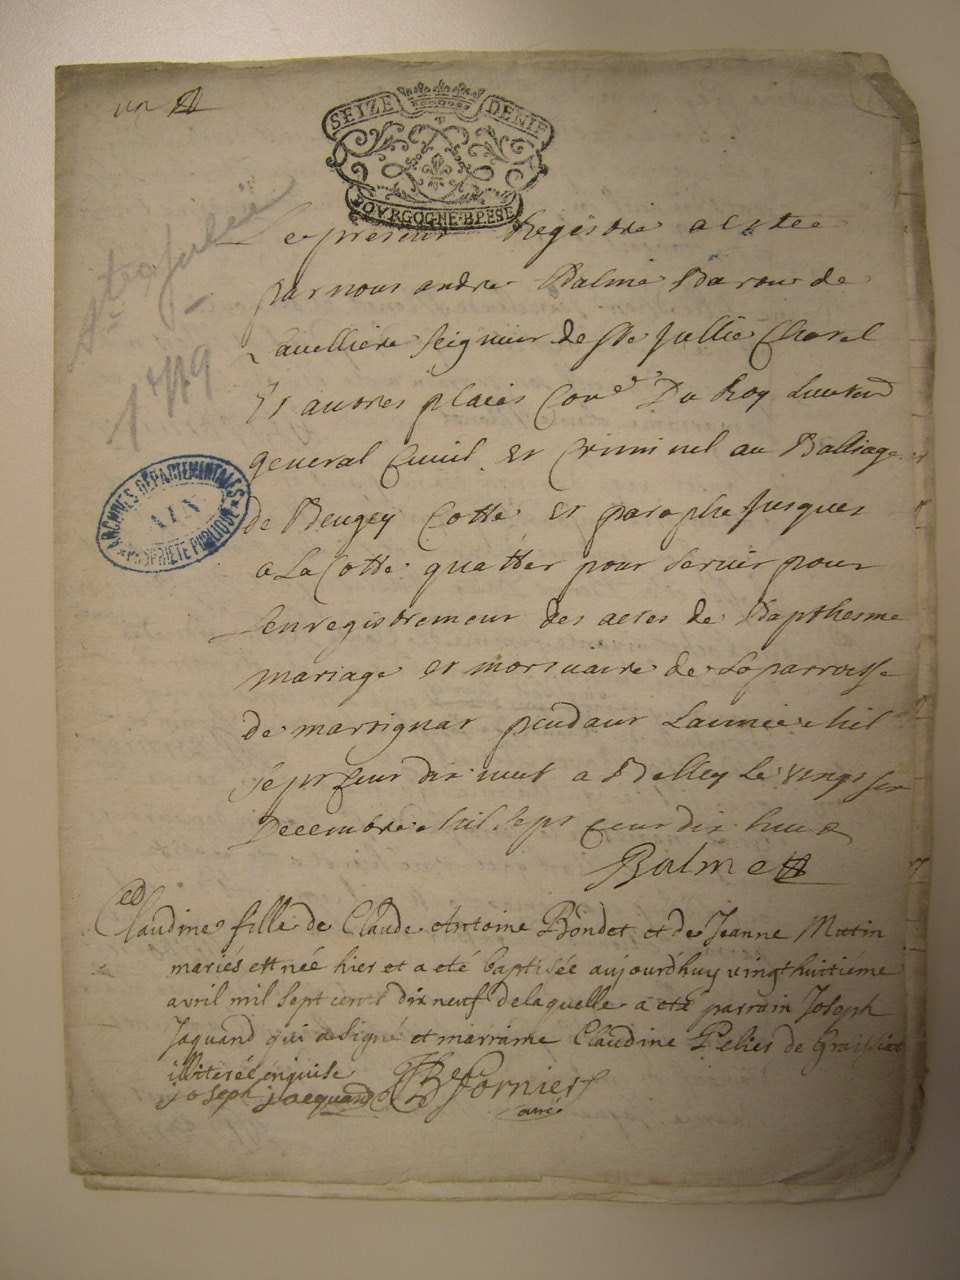 un
SEIZE DENIE
BOURGOGNE·BRESE
Ste Julie
1719
ARCHIVES DÉPARTEMENTALES
AIN
PROPRIÉTÉ PUBLIQUE
Le present Registre a este
par nous andre Balme Baron de
seigneur de Ste Jullie Charel
Et autres places Con.er Du Roy Lieuten
general Civil et Criminel au Balliage
de Beugey Cotté et paraphé Jusques
a La Cotte quatter pour servir pour
Lenregistrement des actes de Bapthesme
mariage et mortuaire de La parroisse
de martignat pendant Lannee mil
sept cent dix neuf a Belley le vingt six
Decembre mil sept cent dix huit
Balme
Claudine fille de Claude Antoine Bondet et de Jeanne Mutin
mariés est née hier et a eté baptisée aujourdhuy vingt huitiéme
avril mil sept cents dix neuf de laquelle a eté parrain Joseph
Jaquand qui a signé et marraine Claudine Pelier de
illiterée enquise
joseph jacquand Fornier
curé